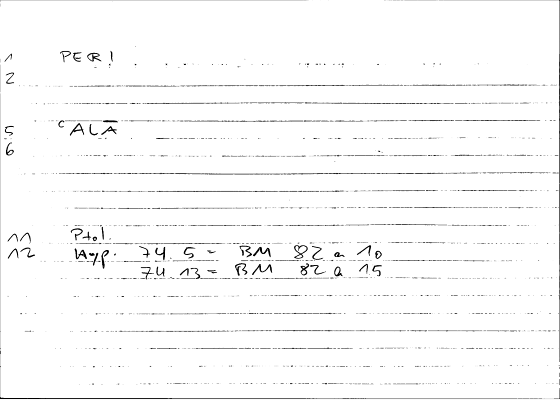 1 PERI
2
5 ʿALĀ
6
11 Ptol.
12 Hyp. 74 5 = BM 82 a 10
74 13 = BM 82 a 15